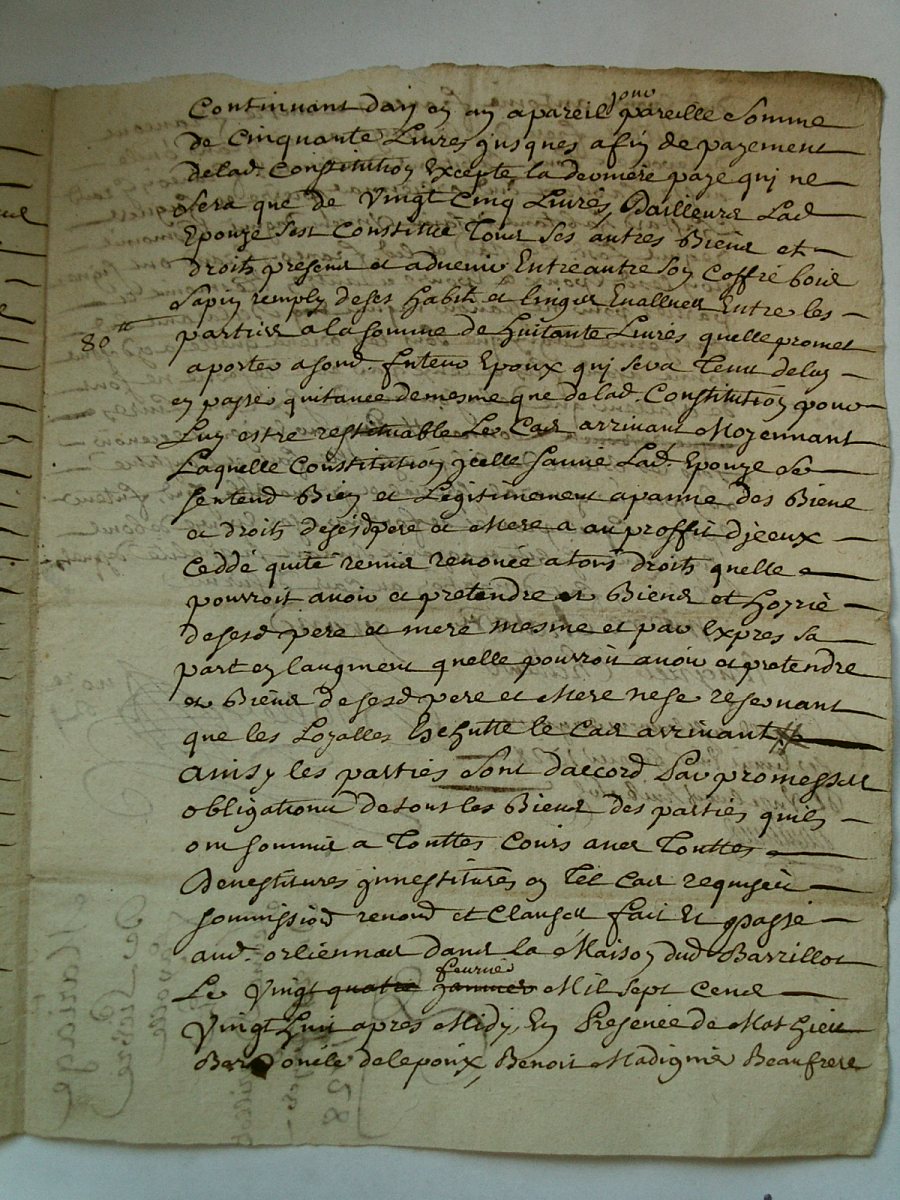 Continuant d'an en an apareil jour pareille somme
de Cinquante Livres jusques afin de payement
delad. Constitution Excepté la derniere paye qui ne
sera que de Vingt Cinq Livres, Dailleurs Lad
Epouze sest Constitué Tous ses autres Biens et
droits presens et advenir Entre autre son coffre bois
sapin remply deses habits et linges Evallues Entre les
80tt
parties a la somme de huitante Livres quelle promet
aporter a sond. futeur Epoux qui sera Tenu deluy
en passer quitance demesme que delad. Constitution pour
Luy estre restituable Le Cas arrivant Moyennant
Laquelle Constitution jcelle Lad. Epouze se
sentend Bien et Legitimement apanné des Biens
et droits desesd pere et Mere a au proffit djceux
ceddé quité remis renoncé a tous droits quelle
pourroit avoir et pretendre es Biens et hoyrie
desesd pere et mere mesme et par Expres sa
part en laugment quelle pourroit avoir et pretendre
es Biens desesd pere et Mere nese reservant
que les Loyalles Echutte le Cas arrivant
ainsy les parties sont d'accord Par promesses
obligations detous les Biens des parties quils
ont sommis a Touttes Cours avec Touttes
Devestitures jnvestitures en Tel Cas requises
sommission renond et Clauses fait Et passé
aud. orliennas dans la Maison dud Barrillot
Le Vingt quatre janvier fevrier Mil sept Cens
Vingt huit apres Midy, En Presence de Mathieu
delepoix, Benoit Madignié Beaufrere